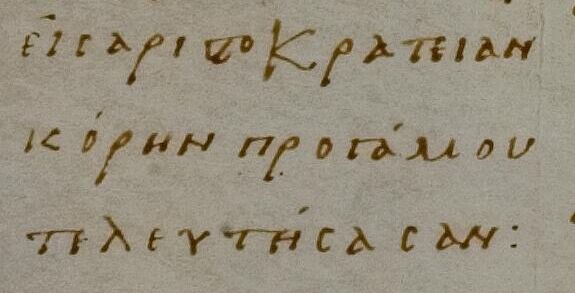 εἰσ αριϛοκρατειαν
κόρην προγάμου
τελευτήσασαν: